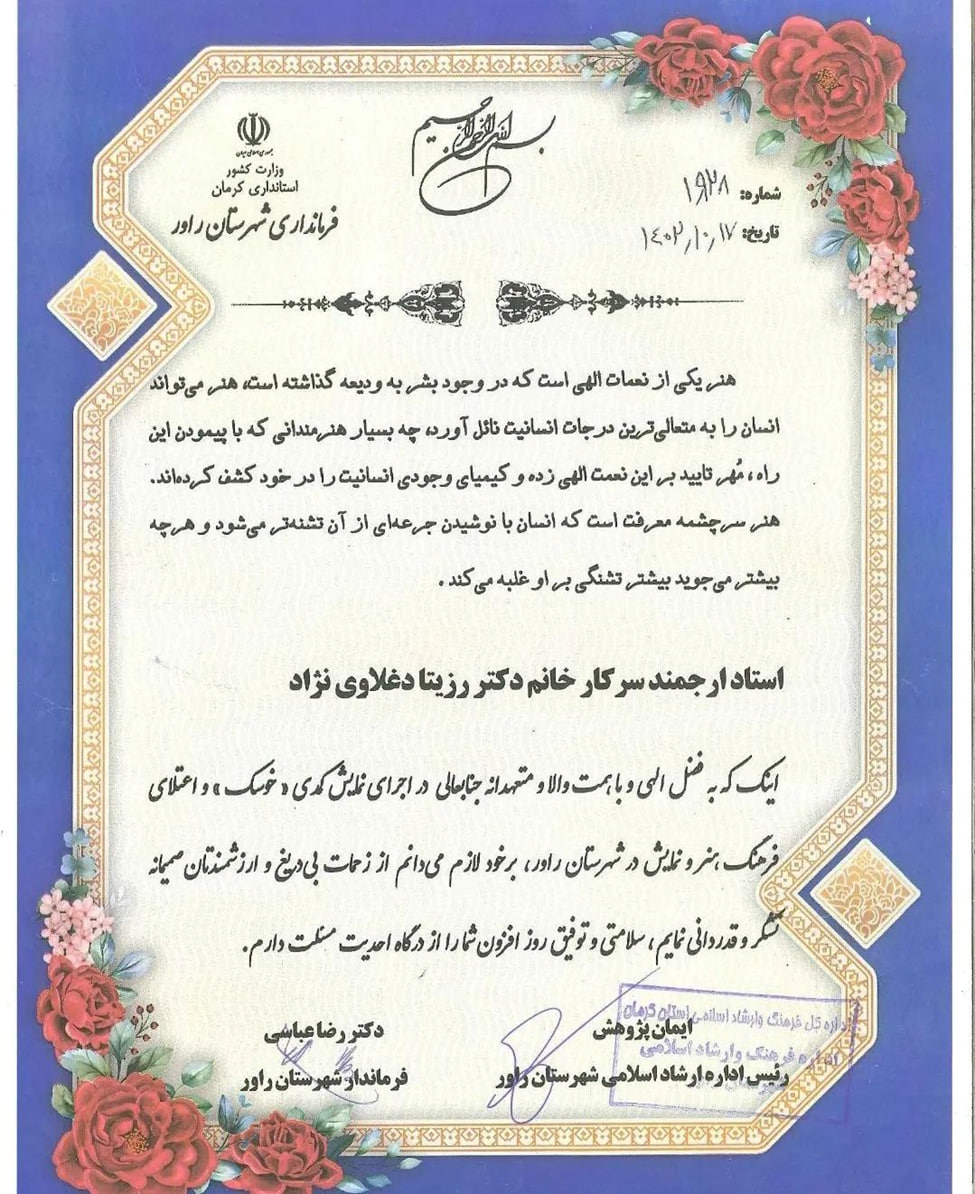 بسم الله الرحمن الرحیم
جمهوری اسلامی ایران
وزارت کشور
استانداری کرمان
فرمانداری شهرستان راور
شماره: ۱۹۲۸
تاریخ: ۱۴۰۲٫۱۰٫۱۷
هنر یکی از نعمات الهی است که در وجود بشر به ودیعه گذاشته است، هنر می‌تواند
انسان را به متعالی‌ترین درجات انسانیت نائل آورد، چه بسیار هنرمندانی که با پیمودن این
راه، مُهر تایید بر این نعمت الهی زده و کیمیای وجودی انسانیت را در خود کشف کرده‌اند.
هنر سرچشمه معرفت است که انسان با نوشیدن جرعه‌ای از آن تشنه‌تر می‌شود و هرچه
بیشتر می‌جوید بیشتر تشنگی بر او غلبه می‌کند .
استاد ارجمند سرکار خانم دکتر رزیتا دغلاوی نژاد
اینک که به فضل الهی و با همت والا و متعهدانه جنابعالی در اجرای نمایش کمدی « خوسک » و اعتلای
فرهنگ ،هنر و نمایش در شهرستان راور، برخود لازم می‌دانم از زحمات بی‌دریغ و ارزشمندتان صمیمانه
تشکر و قدردانی نمایم، سلامتی و توفیق روز افزون شما را از درگاه احدیت مسئلت دارم.
اداره کل فرهنگ وارشاد اسلامی استان کرمان
اداره فرهنگ وارشاد اسلامی
ایمان پژوهش
رئیس اداره ارشاد اسلامی شهرستان راور
دکتر رضا عباسی
فرماندار شهرستان راور